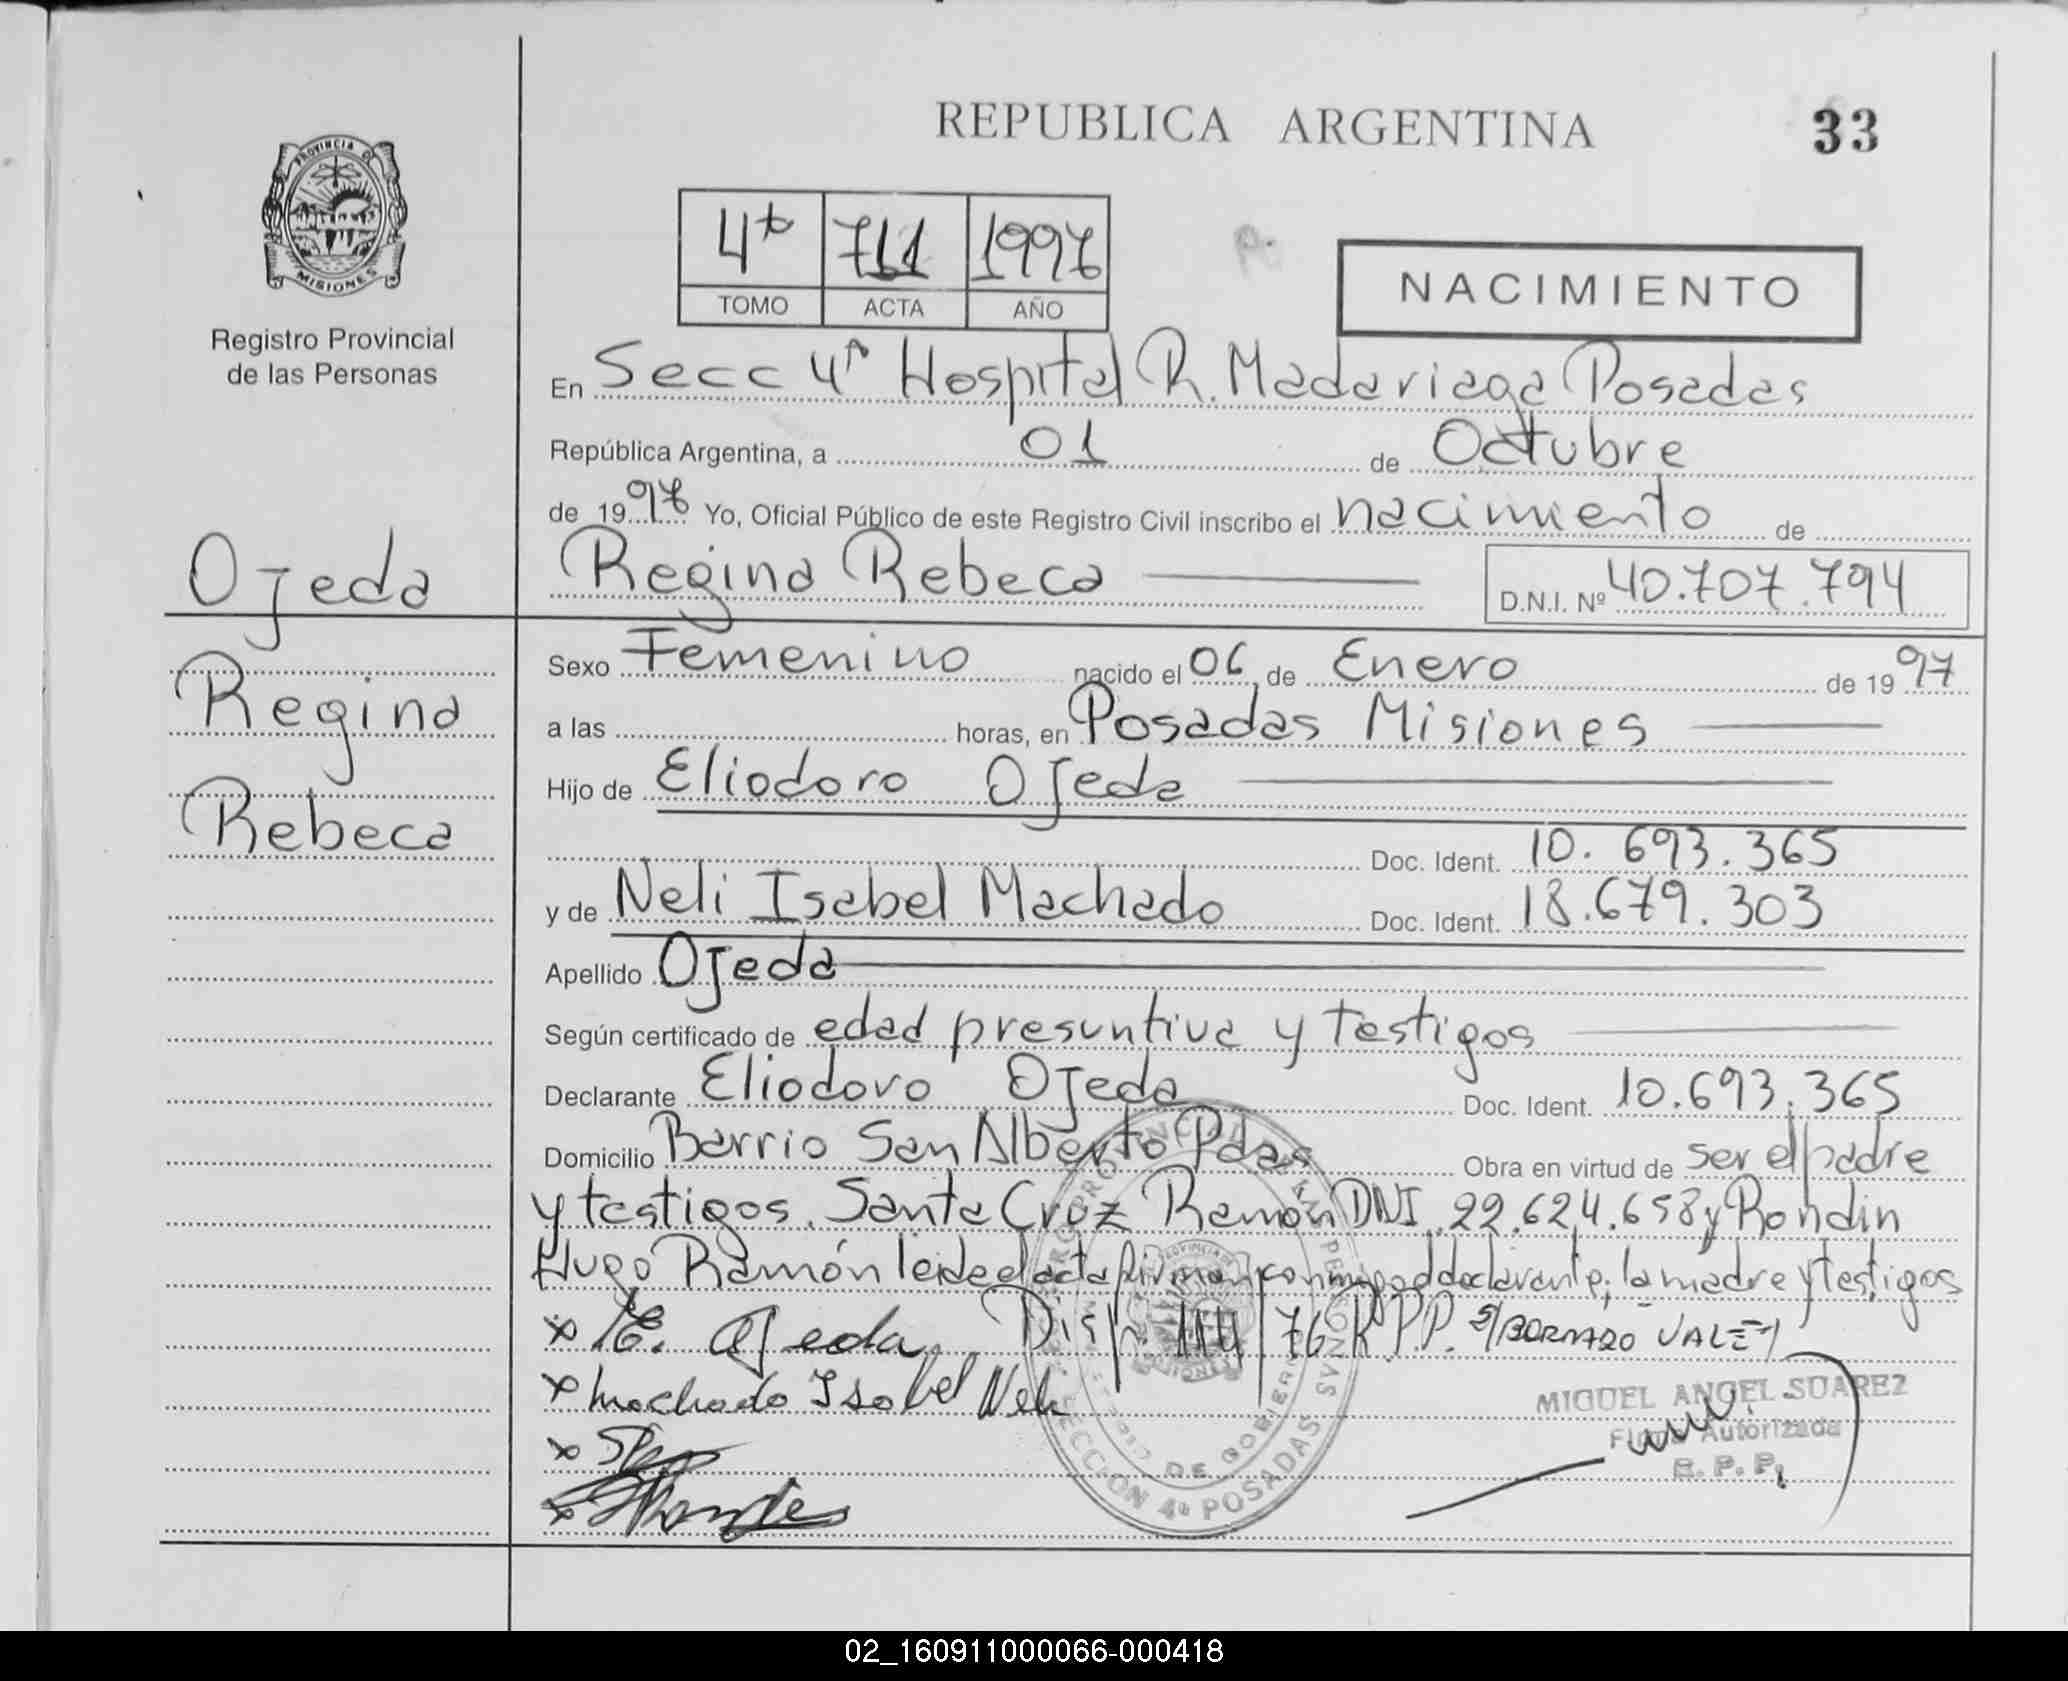 REPUBLICA ARGENTINA
33
PROVINCIA DE
MISIONES
Registro Provincial
de las Personas
4to 711 1997
TOMO ACTA AÑO
NACIMIENTO
En Secc 4ª Hospital R. Madariaga Posadas
República Argentina, a 01 de Octubre
de 1997 Yo, Oficial Público de este Registro Civil inscribo el nacimiento de
Regina Rebeca D.N.I. Nº 40.707.794
Ojeda
Regina
Rebeca
Sexo Femenino nacido el 06 de Enero de 1997
a las horas, en Posadas Misiones
Hijo de Eliodoro Ojeda
Doc. Ident. 10.693.365
y de Neli Isabel Machado Doc. Ident. 18.679.303
Apellido Ojeda
Según certificado de edad presuntiva y testigos
Declarante Eliodoro Ojeda Doc. Ident. 10.693.365
Domicilio Barrio San Alberto Pdas Obra en virtud de ser el padre
y testigos. Santa Cruz Ramón DNI 22.624.658 y Rondin
Hugo Ramón leida el acta firman conmigo el declarante; la madre y testigos
x E. Ojeda. Disp. 114/76 R.P.P.
x Machado Isabel Neli
x
x
MIGUEL ANGEL SUAREZ
Firma Autorizada
R. P. P.
SECCION 4ª POSADAS
02_160911000066-000418